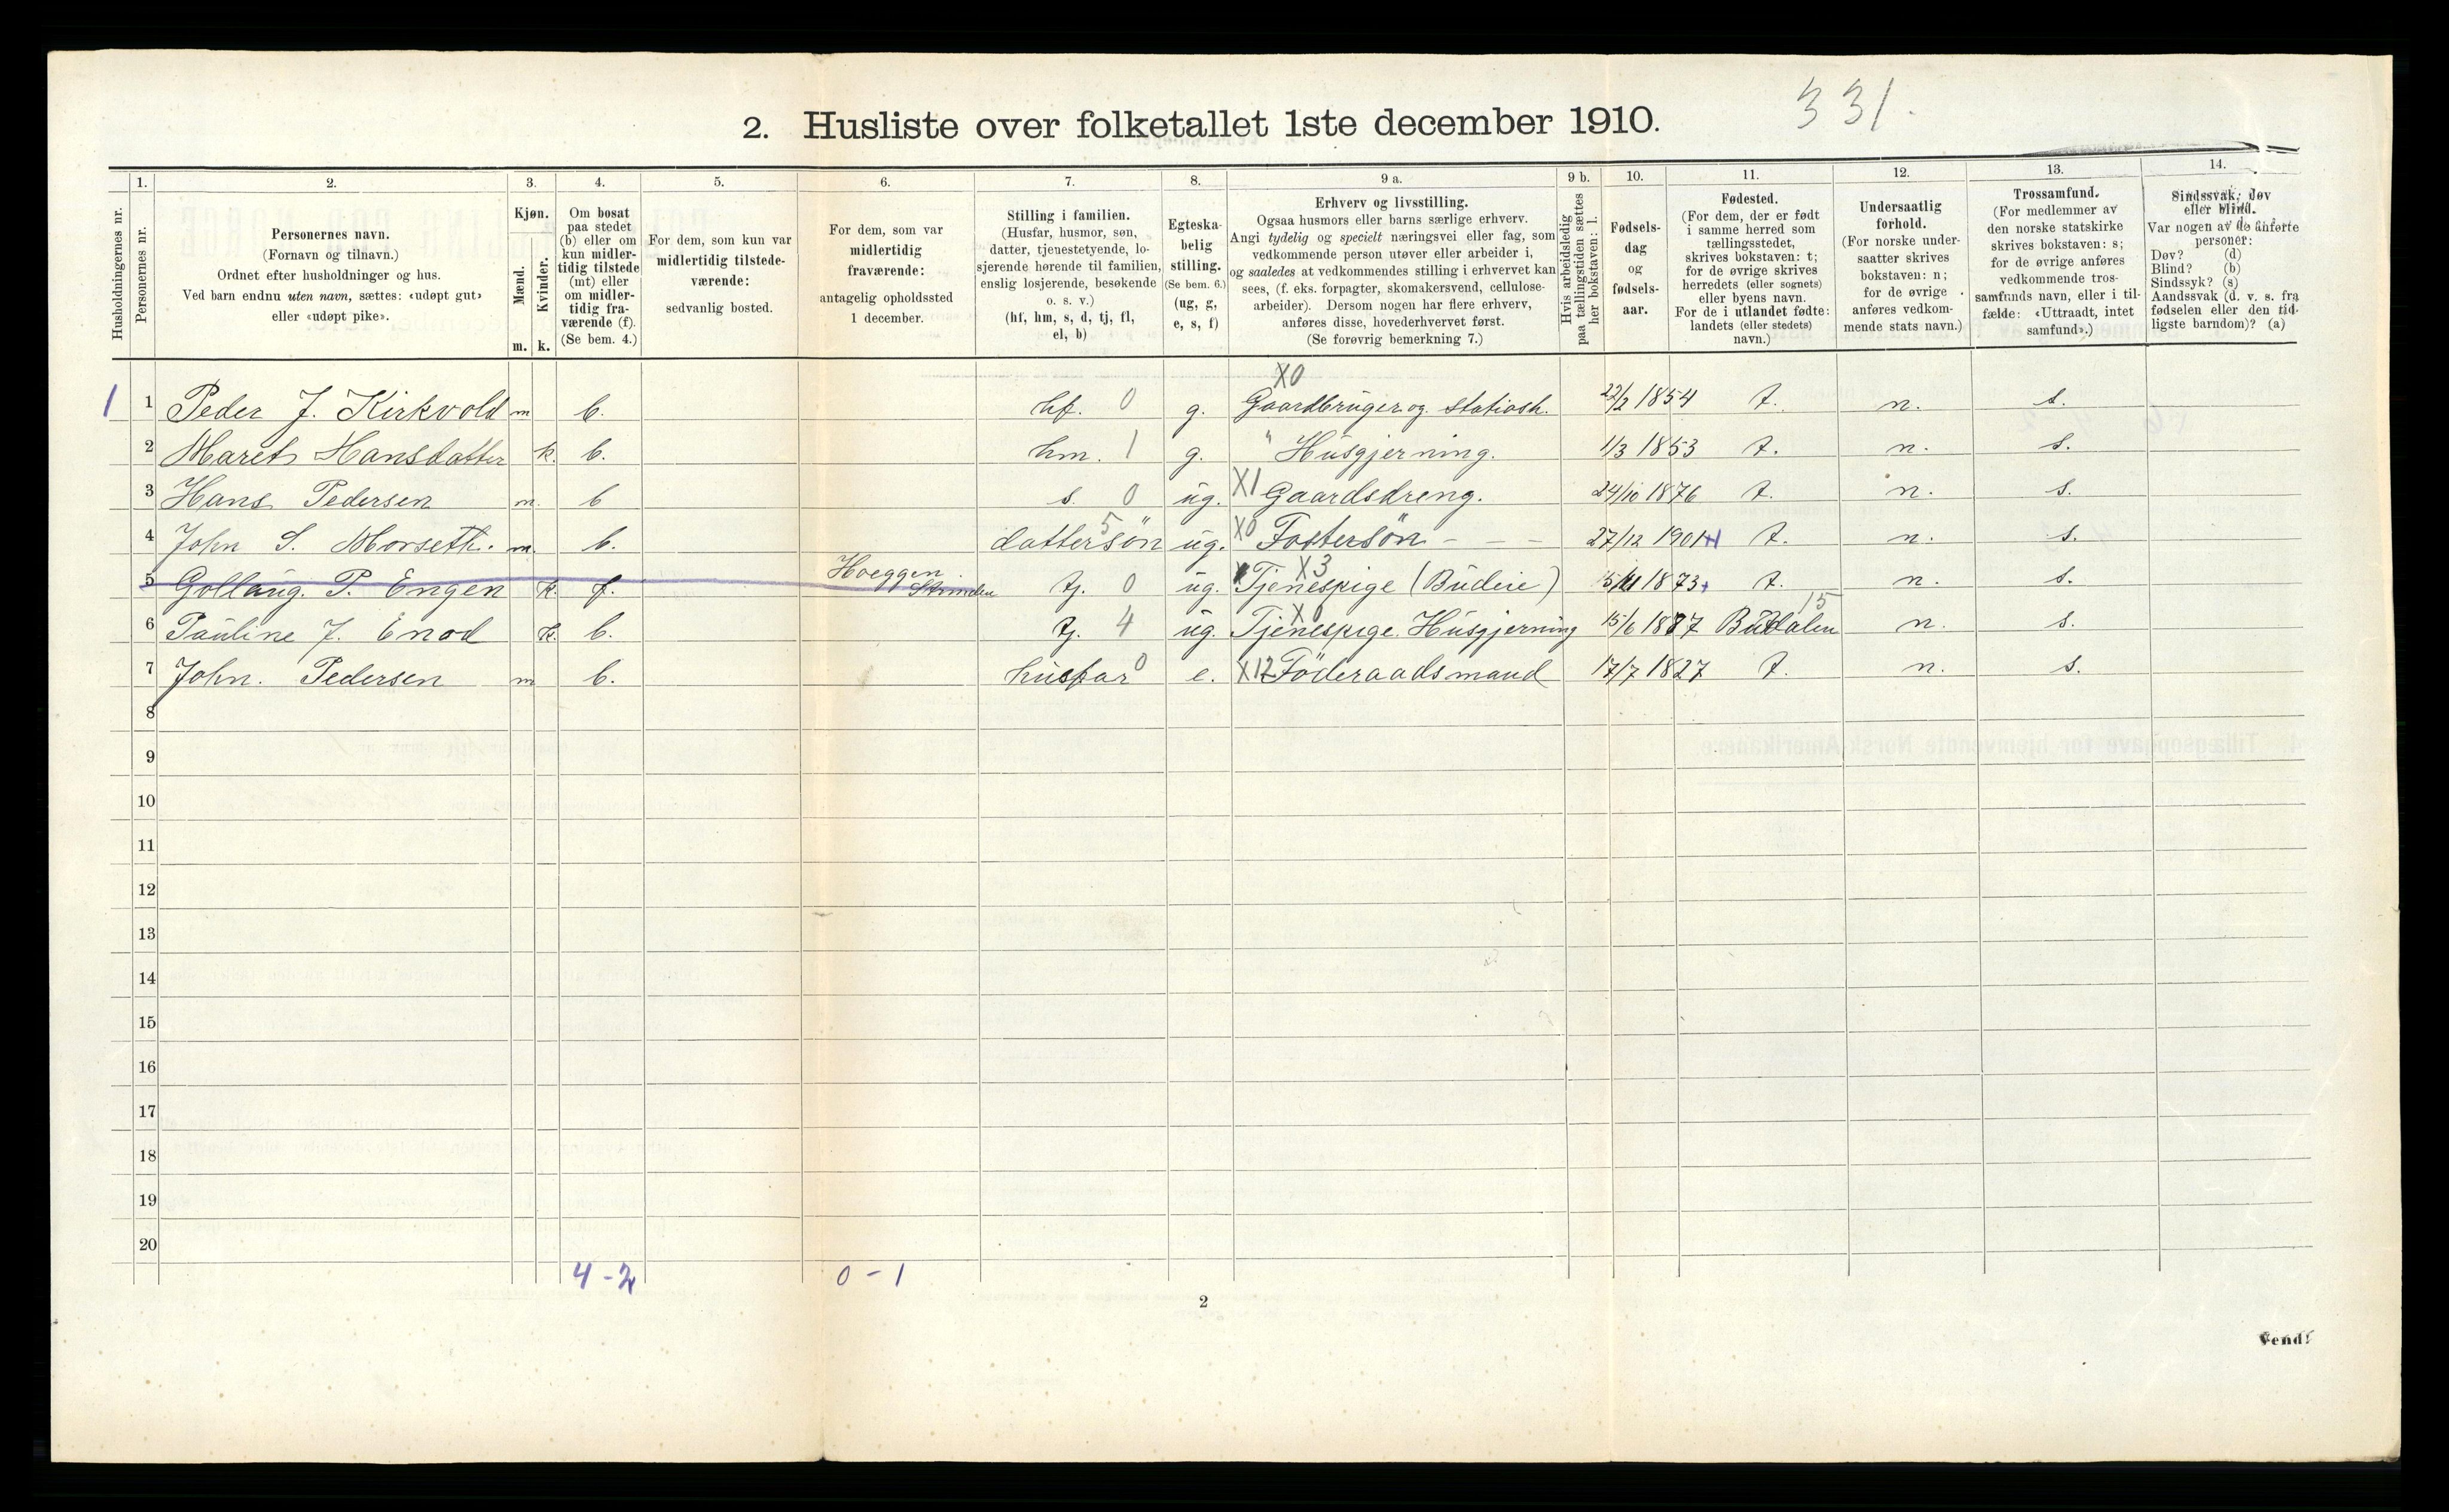 331.
2. Husliste over folketallet 1ste december 1910.
Husholdningernes nr.
1.
Personernes nr.
2.
Personernes navn.
(Fornavn og tilnavn.)
Ordnet efter husholdninger og hus.
Ved barn endnu uten navn, sættes: «udøpt gut»
eller «udøpt pike».
3.
Kjøn.
Mænd.
Kvinder.
m. k.
4.
Om bosat
paa stedet
(b) eller om
kun midler-
tidig tilstede
(mt) eller
om midler-
tidig fra-
værende (f).
(Se bem. 4.)
5.
For dem, som kun var
midlertidig tilstede-
værende:
sedvanlig bosted.
6.
For dem, som var
midlertidig
fraværende:
antagelig opholdssted
1 december.
7.
Stilling i familien.
(Husfar, husmor, søn,
datter, tjenestetyende, lo-
sjerende hørende til familien,
enslig losjerende, besøkende
o. s. v.)
(hf, hm, s, d, tj, fl,
el, b)
8.
Egteska-
belig
stilling.
(Se bem. 6.)
(ug, g,
e, s, f)
9 a.
Erhverv og livsstilling.
Ogsaa husmors eller barns særlige erhverv.
Angi tydelig og specielt næringsvei eller fag, som
vedkommende person utøver eller arbeider i,
og saaledes at vedkommendes stilling i erhvervet kan
sees, (f. eks. forpagter, skomakersvend, cellulose-
arbeider). Dersom nogen har flere erhverv,
anføres disse, hovederhvervet først.
(Se forøvrig bemerkning 7.)
9 b.
Hvis arbeidsledig
paa tællingstiden sættes
her bokstaven: l.
10.
Fødsels-
dag
og
fødsels-
aar.
11.
Fødested.
(For dem, der er født
i samme herred som
tællingsstedet,
skrives bokstaven: t;
for de øvrige skrives
herredets (eller sognets)
eller byens navn.
For de i utlandet fødte:
landets (eller stedets)
navn.)
12.
Undersaatlig
forhold.
(For norske under-
saatter skrives
bokstaven: n;
for de øvrige
anføres vedkom-
mende stats navn.)
13.
Trossamfund.
(For medlemmer av
den norske statskirke
skrives bokstaven: s;
for de øvrige anføres
vedkommende tros-
samfunds navn, eller i til-
fælde: «Uttraadt, intet
samfund».)
14.
Sindssvak, døv
eller blind.
Var nogen av de anførte
personer:
Døv? (d)
Blind? (b)
Sindssyk? (s)
Aandssvak (d. v. s. fra
fødselen eller den tid-
ligste barndom)? (a)
X0
1 1 Peder J. Kirkvold m b. hf. 0 g. Gaardbruger og Stationsh. 22/2 1854 t. n. s.
2 Maret Hansdatter k. b. hm. 1 g. " Husgjerning. 1/3 1853 t. n. s.
3 Hans Pedersen m. b s. 0 ug. X1 Gaardsdreng. 24/10 1876 t. n. s.
4 John S. Morseth. m. b. dattersön 5 ug. X0 Fostersön - - - 27/12 1901 t. n. s.
X3
5 Gollaug. P. Engen k. f. Hoeggen tj. 0 ug. Tjenespige (Budeie) 1873 t. n. s.
X0 15
6 Pauline J. Enod k. b. tj. 4 ug. Tjenespige. Husgjerning 15/6 1887 Budalen n. s.
7 John. Pedersen m b. husfar 0 e. X12 Föderaadsmand 17/7 1827 t. n. s.
8
9
10
11
12
13
14
15
16
17
18
19
20
4 - 2 0 - 1
2
Vend!